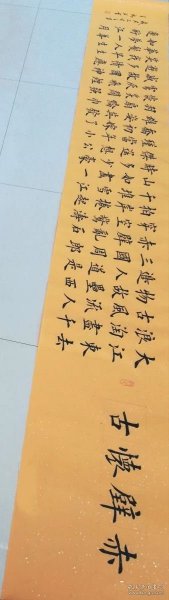 赤壁懷古
大江東去
浪淘盡千
古風流人
物故壘西
邊人道是
三國周郎
赤壁亂石
穿空驚濤
拍岸捲起
千堆雪江
山如畫一
時多少豪
傑遙想公
瑾當年小
喬初嫁了
雄姿英發
羽扇綸巾
談笑間強
虜灰飛煙
滅故國神
遊多情應
笑我早生
華髮人生
如夢一尊
還酹江月